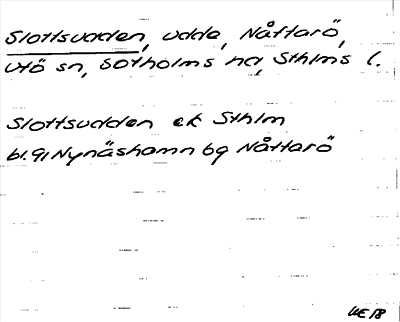 Slottsudden, udde, Nåttarö,
Utö sn, Sotholms hd, Sthlms l.
Slottsudden ek Sthlm
bl. 91 Nynäshamn bg Nåttarö
WE 78